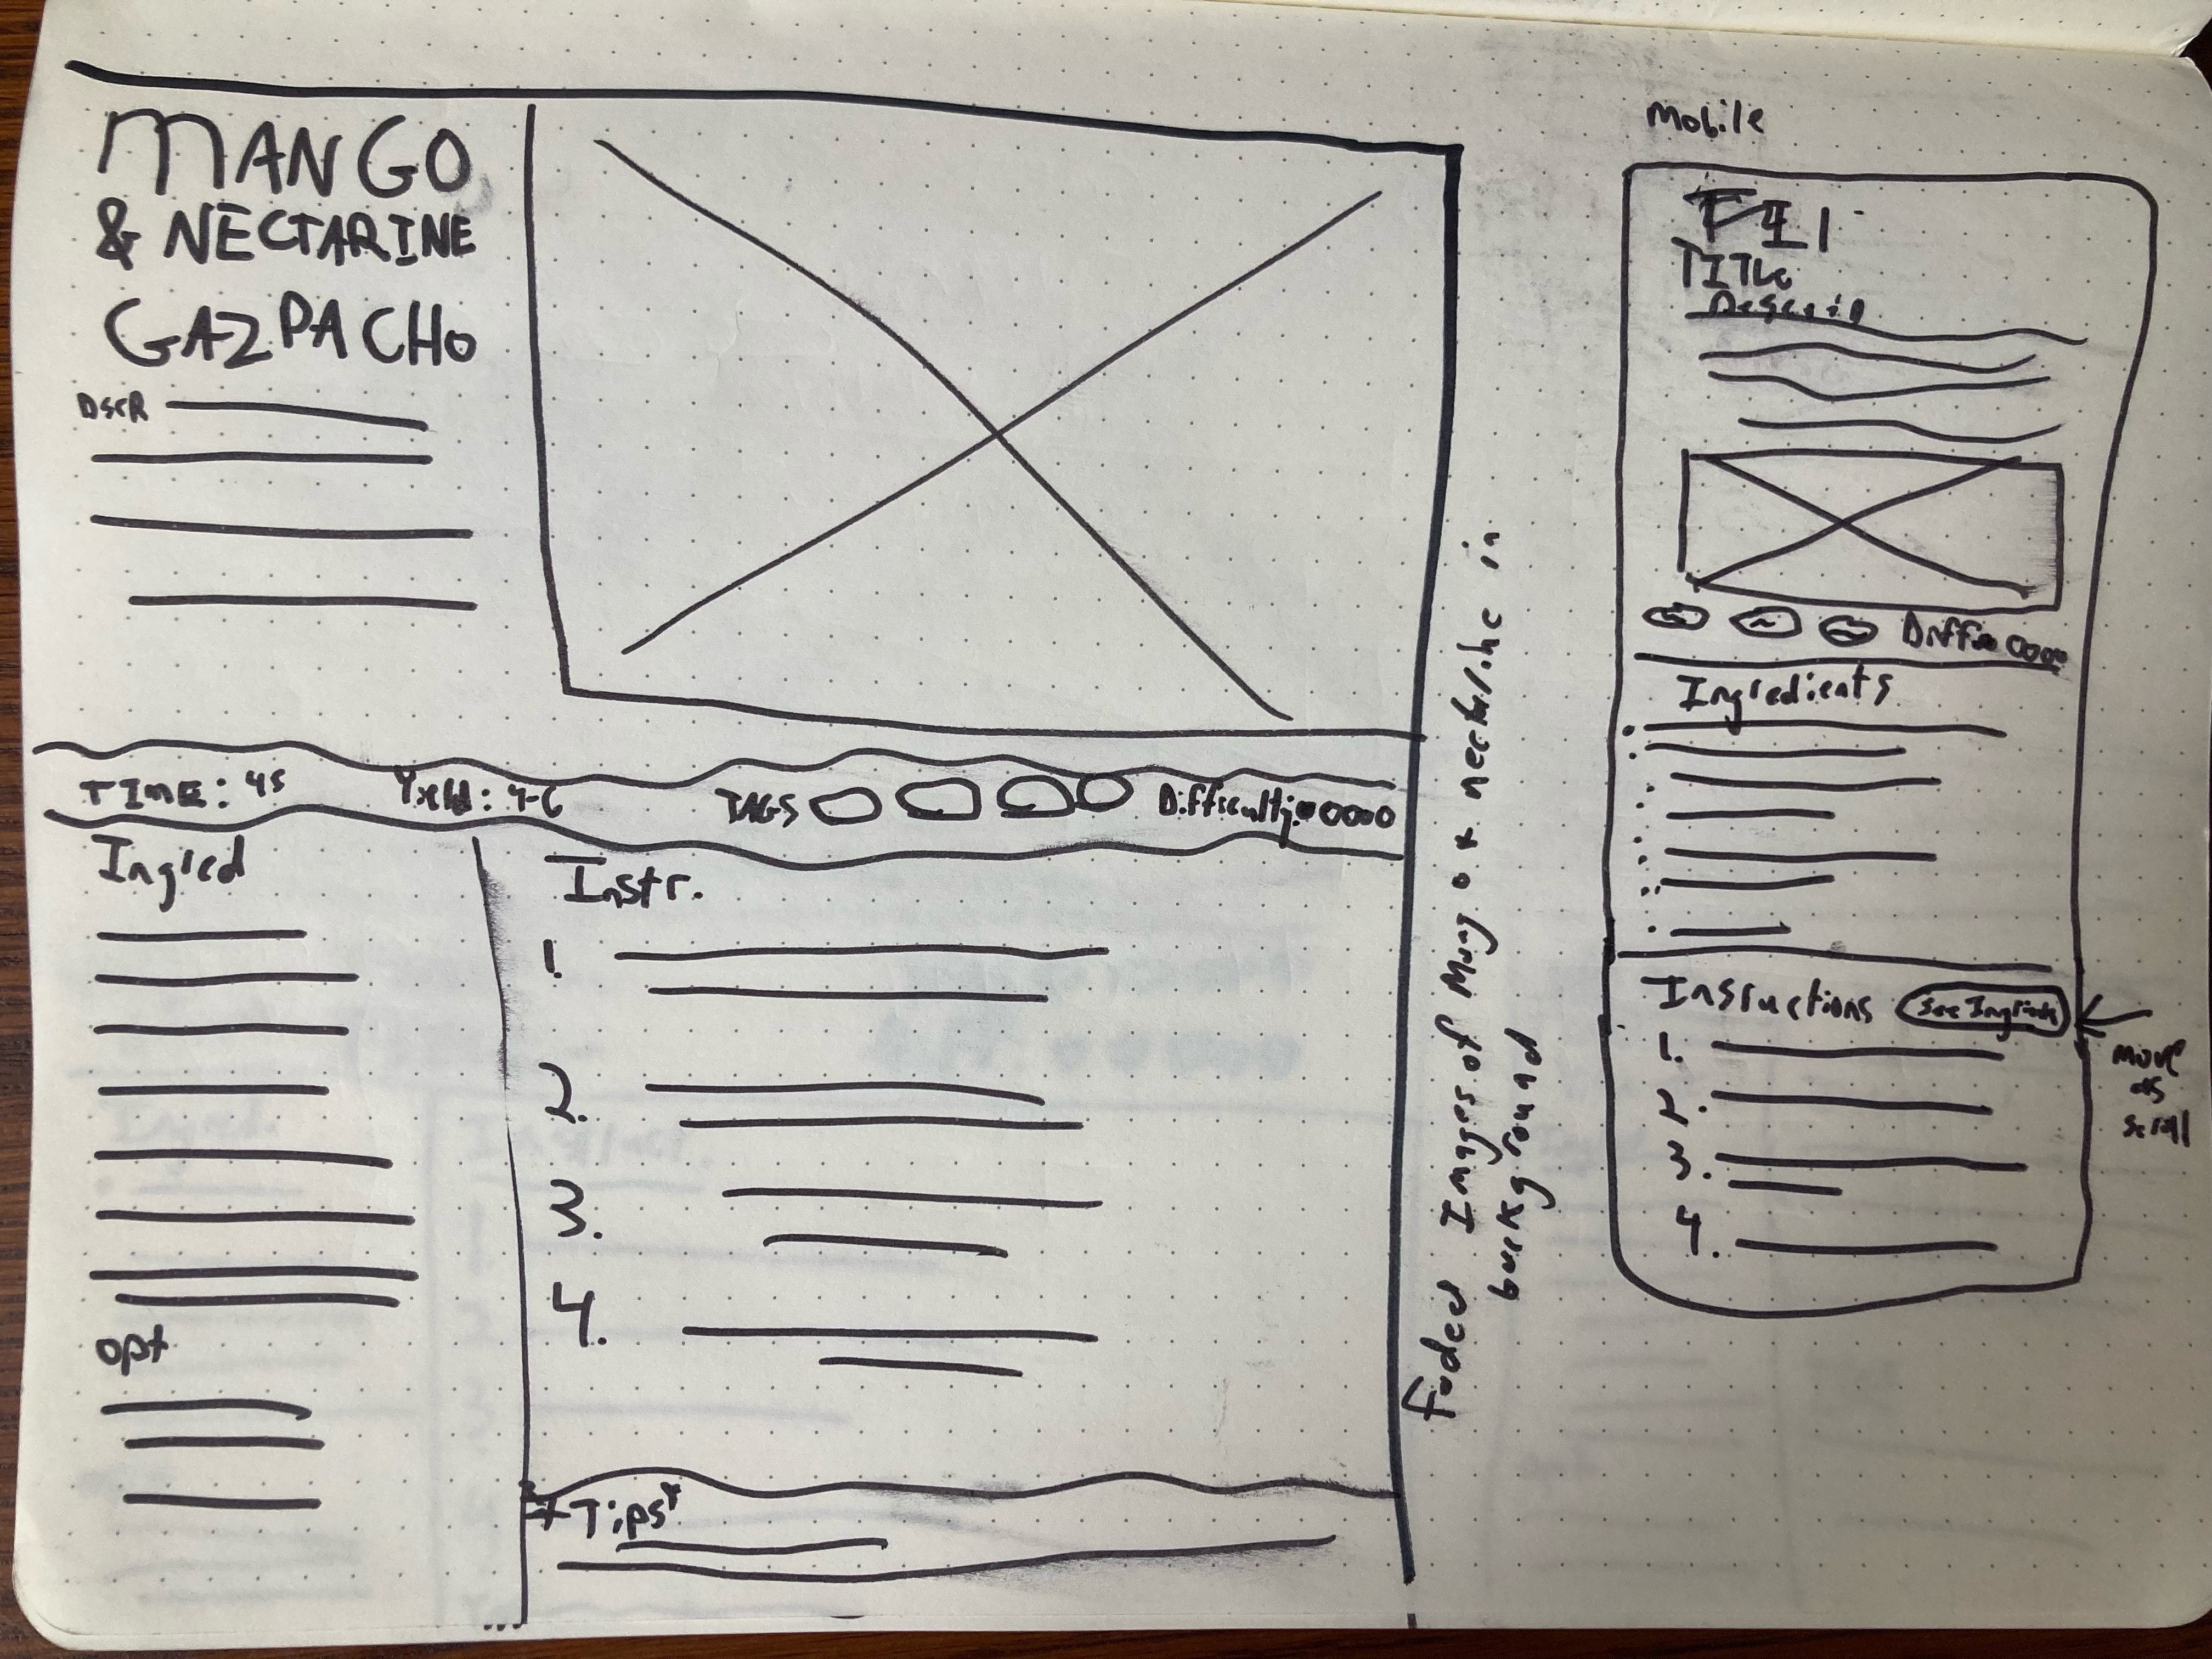 MANGO
& NECTARINE
GAZPACHO
DSCR
TIME: 45
Yield: 4-6
TAGS
Difficulty:
Ingred
opt
Instr.
1.
2.
3.
4.
Tips*
Faded Images of Mango + nectarine in
background
Mobile
TITLE
Descrip
Ingredients
Insructions
See Ingrieds
1.
2.
3.
4.
move
as
scroll